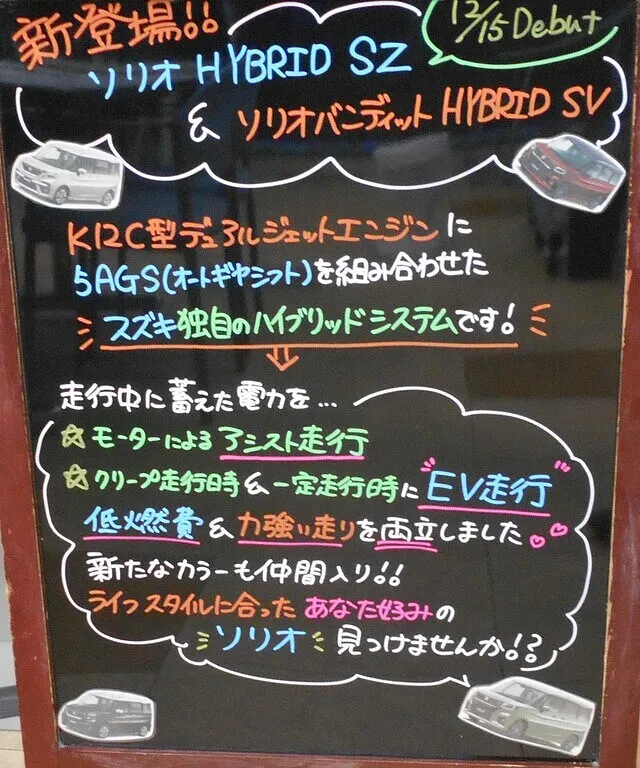 新登場!!
12/15 Debut
ソリオ HYBRID SZ
& ソリオバンディット HYBRID SV
K12C型デュアルジェットエンジンに
5AGS(オートギヤシフト)を組み合わせた
スズキ独自のハイブリッドシステムです!
走行中に蓄えた電力を…
☆モーターによるアシスト走行
☆クリープ走行時&一定走行時にEV走行
低燃費&力強い走りを両立しました♡♡
新たなカラーも仲間入り!!
ライフスタイルに合ったあなた好みの
ソリオ 見つけませんか!?